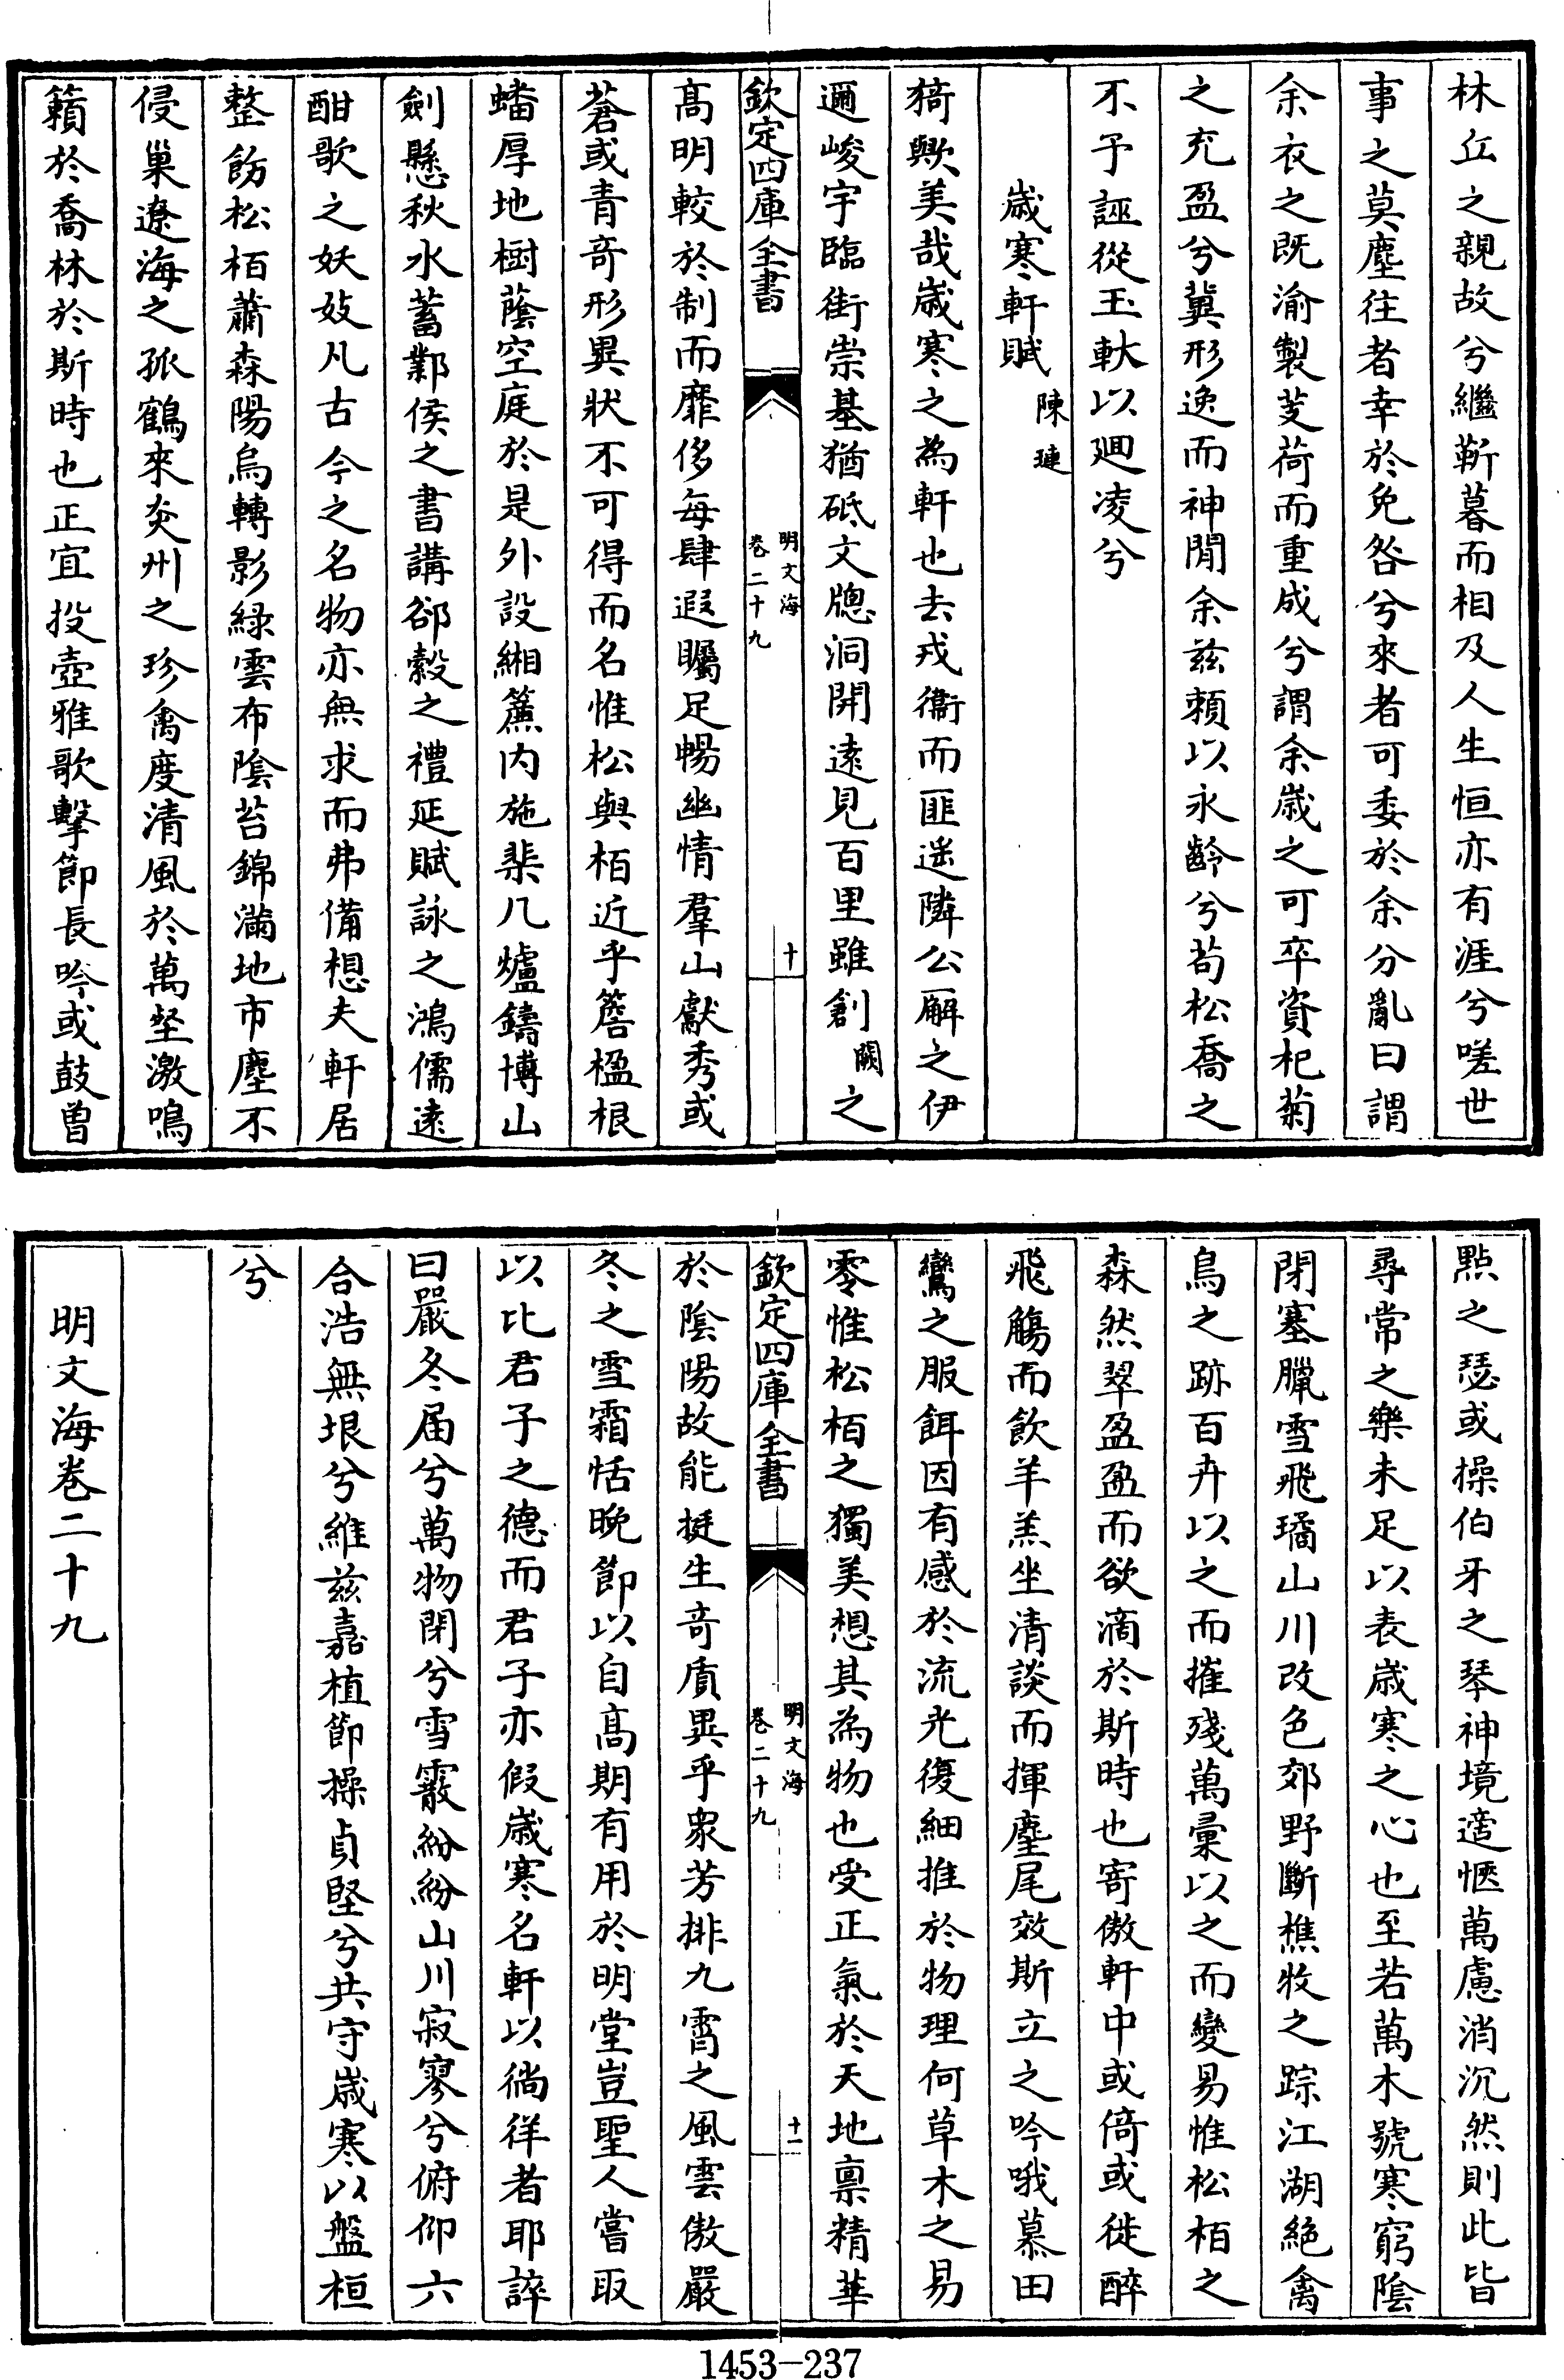 林丘之親故兮繼蘄暮而相及人生恒亦有涯兮嗟世
事之莫塵往者幸於免咎兮來者可委於余分亂曰謂
余衣之既渝製芰荷而重成兮謂余歳之可卒資杞菊
之充盈兮冀形逸而神閒余兹頼以永齡兮苟松喬之
不予誣從玉軑以廻凌兮
歳寒軒賦 陳璉
猗歟美哉歳寒之為軒也去戎衞而匪遥隣公廨之伊
邇峻宇臨街崇基猶砥文牕洞開逺見百里雖創闕之
欽定四庫全書
明文海
卷二十九
十
髙明較於制而靡侈每肆遐矚足暢幽情羣山獻秀或
蒼或青竒形異狀不可得而名惟松與栢近乎簷楹根
蟠厚地樹蔭空庭於是外設緗簾内施棐几爐鑄博山
劍懸秋水蓄鄴侯之書講郤縠之禮延賦詠之鴻儒逺
酣歌之妖妓凡古今之名物亦無求而弗備想夫軒居
整飭松栢蕭森陽烏轉影緑雲布陰苔錦滿地市塵不
侵巢遼海之孤鶴來炎州之珍禽度清風於萬壑激鳴
籟於喬林於斯時也正宜投壺雅歌擊節長吟或鼓曽
㸃之瑟或操伯牙之琴神境適愜萬慮消沉然則此皆
尋常之樂未足以表歳寒之心也至若萬木號寒窮陰
閉塞臘雪飛璚山川改色郊野斷樵牧之踪江湖絶禽
鳥之跡百卉以之而摧殘萬彚以之而變易惟松栢之
森然翠盈盈而欲滴於斯時也寄傲軒中或倚或徙醉
飛觴而飲羊羔坐清談而揮麈尾效斯立之吟哦慕田
鸞之服餌因有感於流光復細推於物理何草木之易
零惟松栢之獨美想其為物也受正氣於天地禀精華
欽定四庫全書
明文海
卷二十九
十一
於陰陽故能挺生竒質異乎衆芳排九霄之風雲傲嚴
冬之雪霜恬晩節以自髙期有用於明堂豈聖人嘗取
以比君子之德而君子亦假歳寒名軒以徜徉者耶誶
曰嚴冬届兮萬物閉兮雪霰紛紛山川寂寥兮俯仰六
合浩無垠兮維兹嘉植節操貞堅兮共守歳寒以盤桓
兮
明文海卷二十九
1453-237